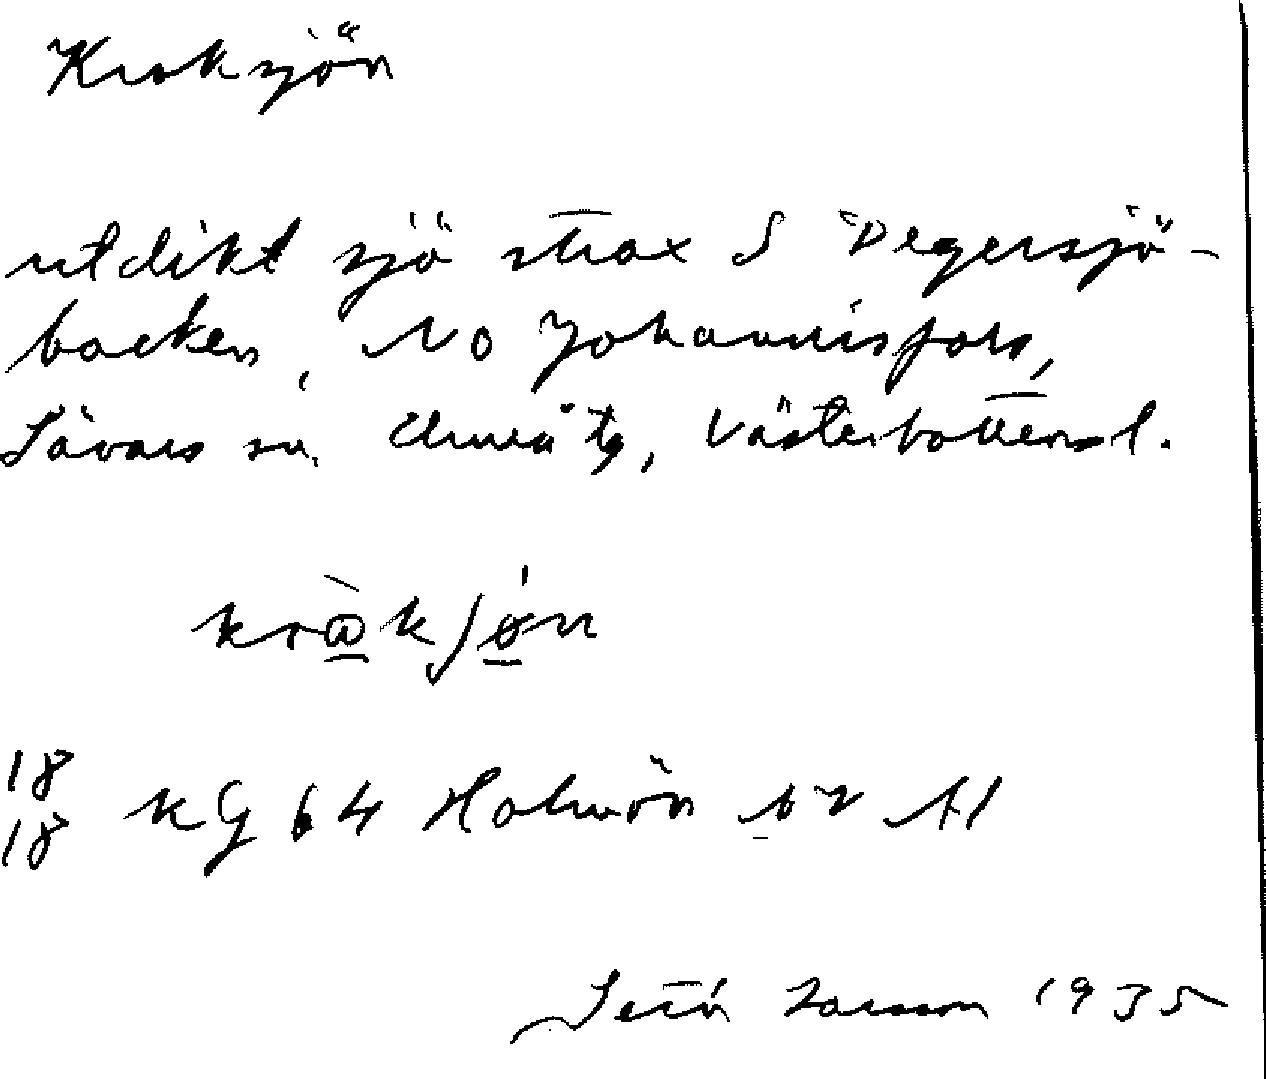 Kroksjön
utdikt sjö strax S Degersjö-
backen, NO Johannisfors,
Sävars sn. Umeå tg, Västerbottens l.
kr@kjøn
18
18 KG 64 Holmön
Larsson 1935